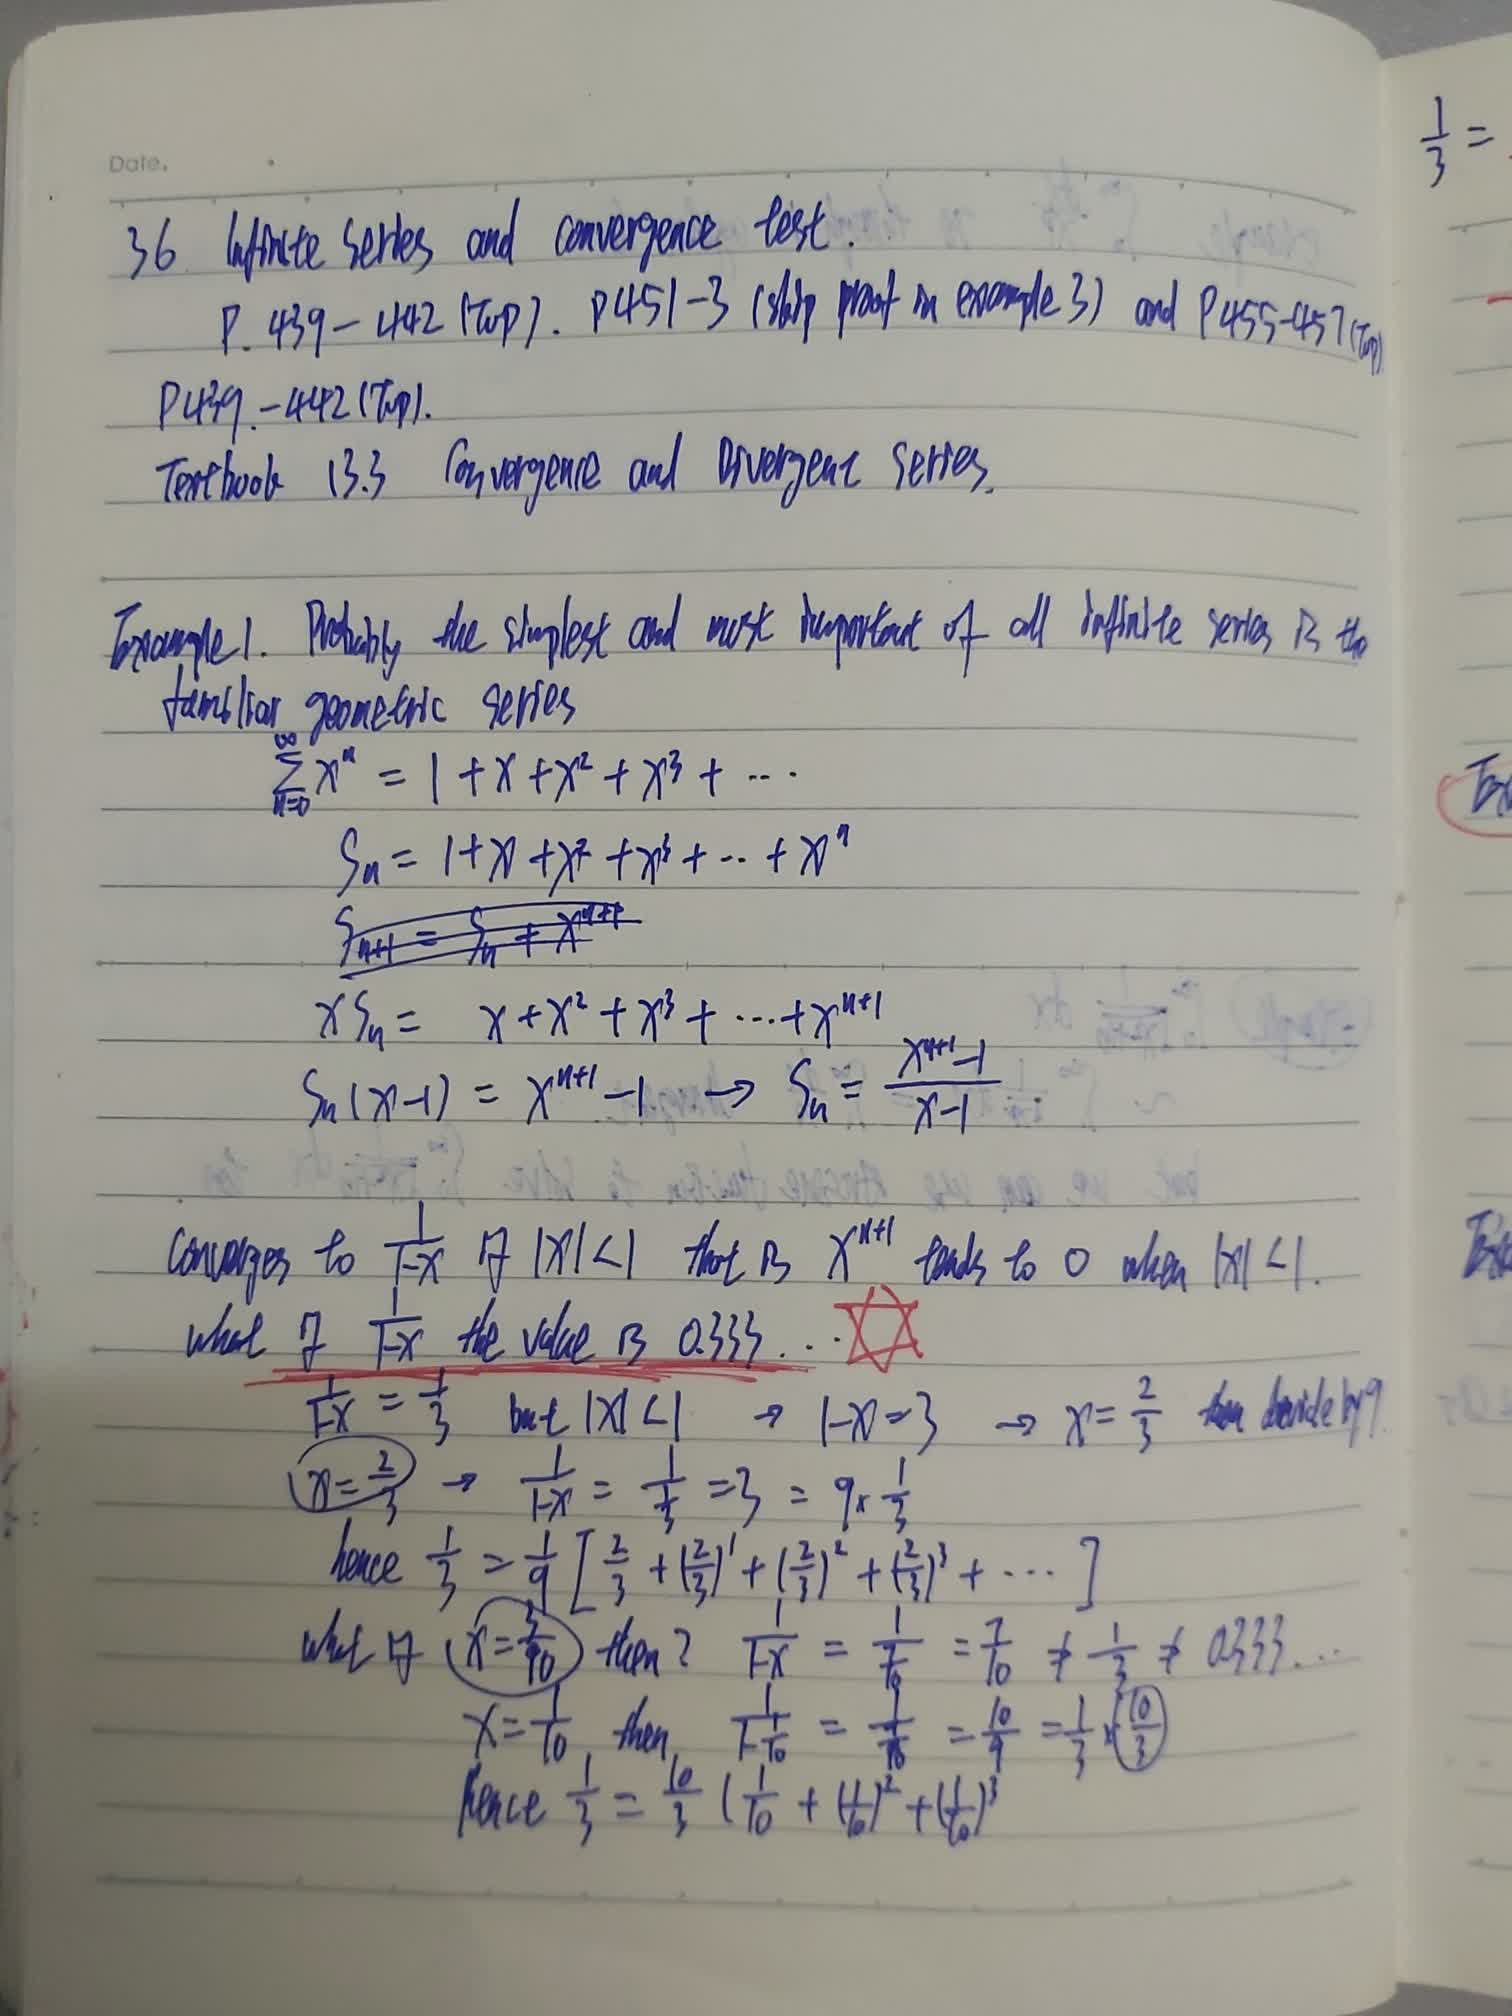 Date.
36 Infinite series and convergence test.
P. 439-442 (Top). P451-3 (skip proof in example 3) and P455-457 (Top)
P439.-442 (Top).
Textbook 13.3 Convergence and Divergent series.
Example 1. Probably the simplest and most important of all infinite series is the
familiar geometric series
∑_{n=0}^{∞} xⁿ = 1 + x + x² + x³ + ...
Sₙ = 1 + x + x² + x³ + ... + xⁿ
Sₙ₊₁ = Sₙ + xⁿ⁺¹
x Sₙ = x + x² + x³ + ... + xⁿ⁺¹
Sₙ (x-1) = xⁿ⁺¹ - 1 → Sₙ = (xⁿ⁺¹-1)/(x-1)
converges to 1/(1-x) if |x| < 1 that is xⁿ⁺¹ tends to 0 when |x| < 1.
what if 1/(1-x) the value is 0.333...
1/(1-x) = 1/3 but |x| < 1 → 1-x = 3 → x = 2/3 then devide by 9
x = 2/3 → 1/(1-x) = 1/(1/3) = 3 = 9 × 1/3
hence 1/3 = 1/9 [2/3 + (2/3)¹ + (2/3)² + (2/3)³ + ...]
what if x = 3/10 then? 1/(1-x) = = 7/10 ≠ 1/3 ≠ 0.333...
x = 1/10 then 1/(1-1/10) = = 10/9 = 1/3 × 10/3
hence 1/3 = 10/3 (1/10 + (1/10)² + (1/10)³
1/3 =